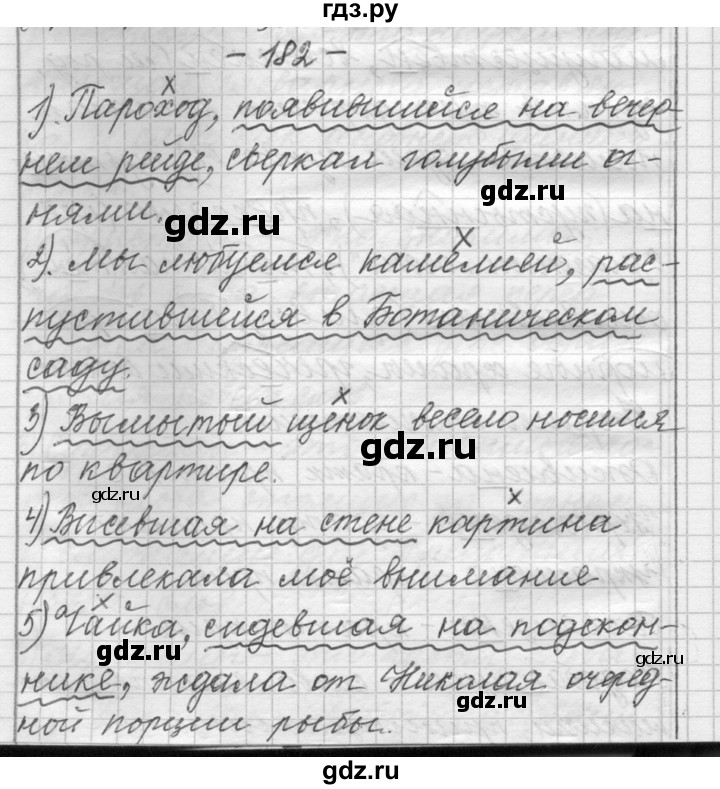 гдз.ру
- 182 -
1). Пароход, появившийся на вечер-
нем рейде, сверкал голубыми ог-
нями.
gdz.ru
2). Мы любуемся камелией, рас-
gdz.ru
пустившейся в Ботаническом
саду.
3) Вымытый щенок весело носился
gdz.ru
по квартире.
gdz.ru
4) Висевшая на стене картина
gdz.ru
привлекала моё внимание
5) Чайка, сидевшая на подокон-
gdz.ru
gdz.ru
нике, ждала от Николая очеред-
gdz.ru
ной порции рыбы.
gdz.ru